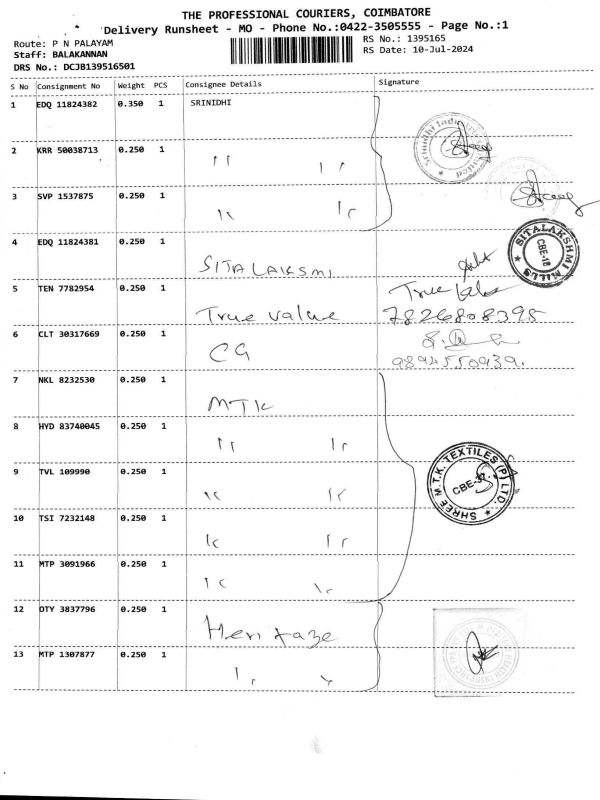 THE PROFESSIONAL COURIERS, COIMBATORE
Delivery Runsheet - MO - Phone No.:0422-3505555 - Page No.:1
Route: P N PALAYAM
RS No.: 1395165
Staff: BALAKANNAN
RS Date: 10-Jul-2024
DRS No.: DCJB139516501
S No Consignment No Weight PCS Consignee Details Signature
1 EDQ 11824382 0.350 1 SRINIDHI
2 KRR 50038713 0.250 1 " "
3 SVP 1537875 0.250 1 " "
4 EDQ 11824381 0.250 1 SITALAKSMI
SITALAKSHMI MILLS CBE-18
5 TEN 7782954 0.250 1 True value True
7826808395
6 CLT 30317669 0.250 1 CG
9894550939.
7 NKL 8232530 0.250 1 MTK
8 HYD 83740045 0.250 1 " "
9 TVL 109990 0.250 1 " "
SHREE M.T.K. TEXTILES (P) LTD. CBE-37
10 TSI 7232148 0.250 1 " "
11 MTP 3091966 0.250 1 " "
12 OTY 3837796 0.250 1 Heritaze
13 MTP 1307877 0.250 1 " "